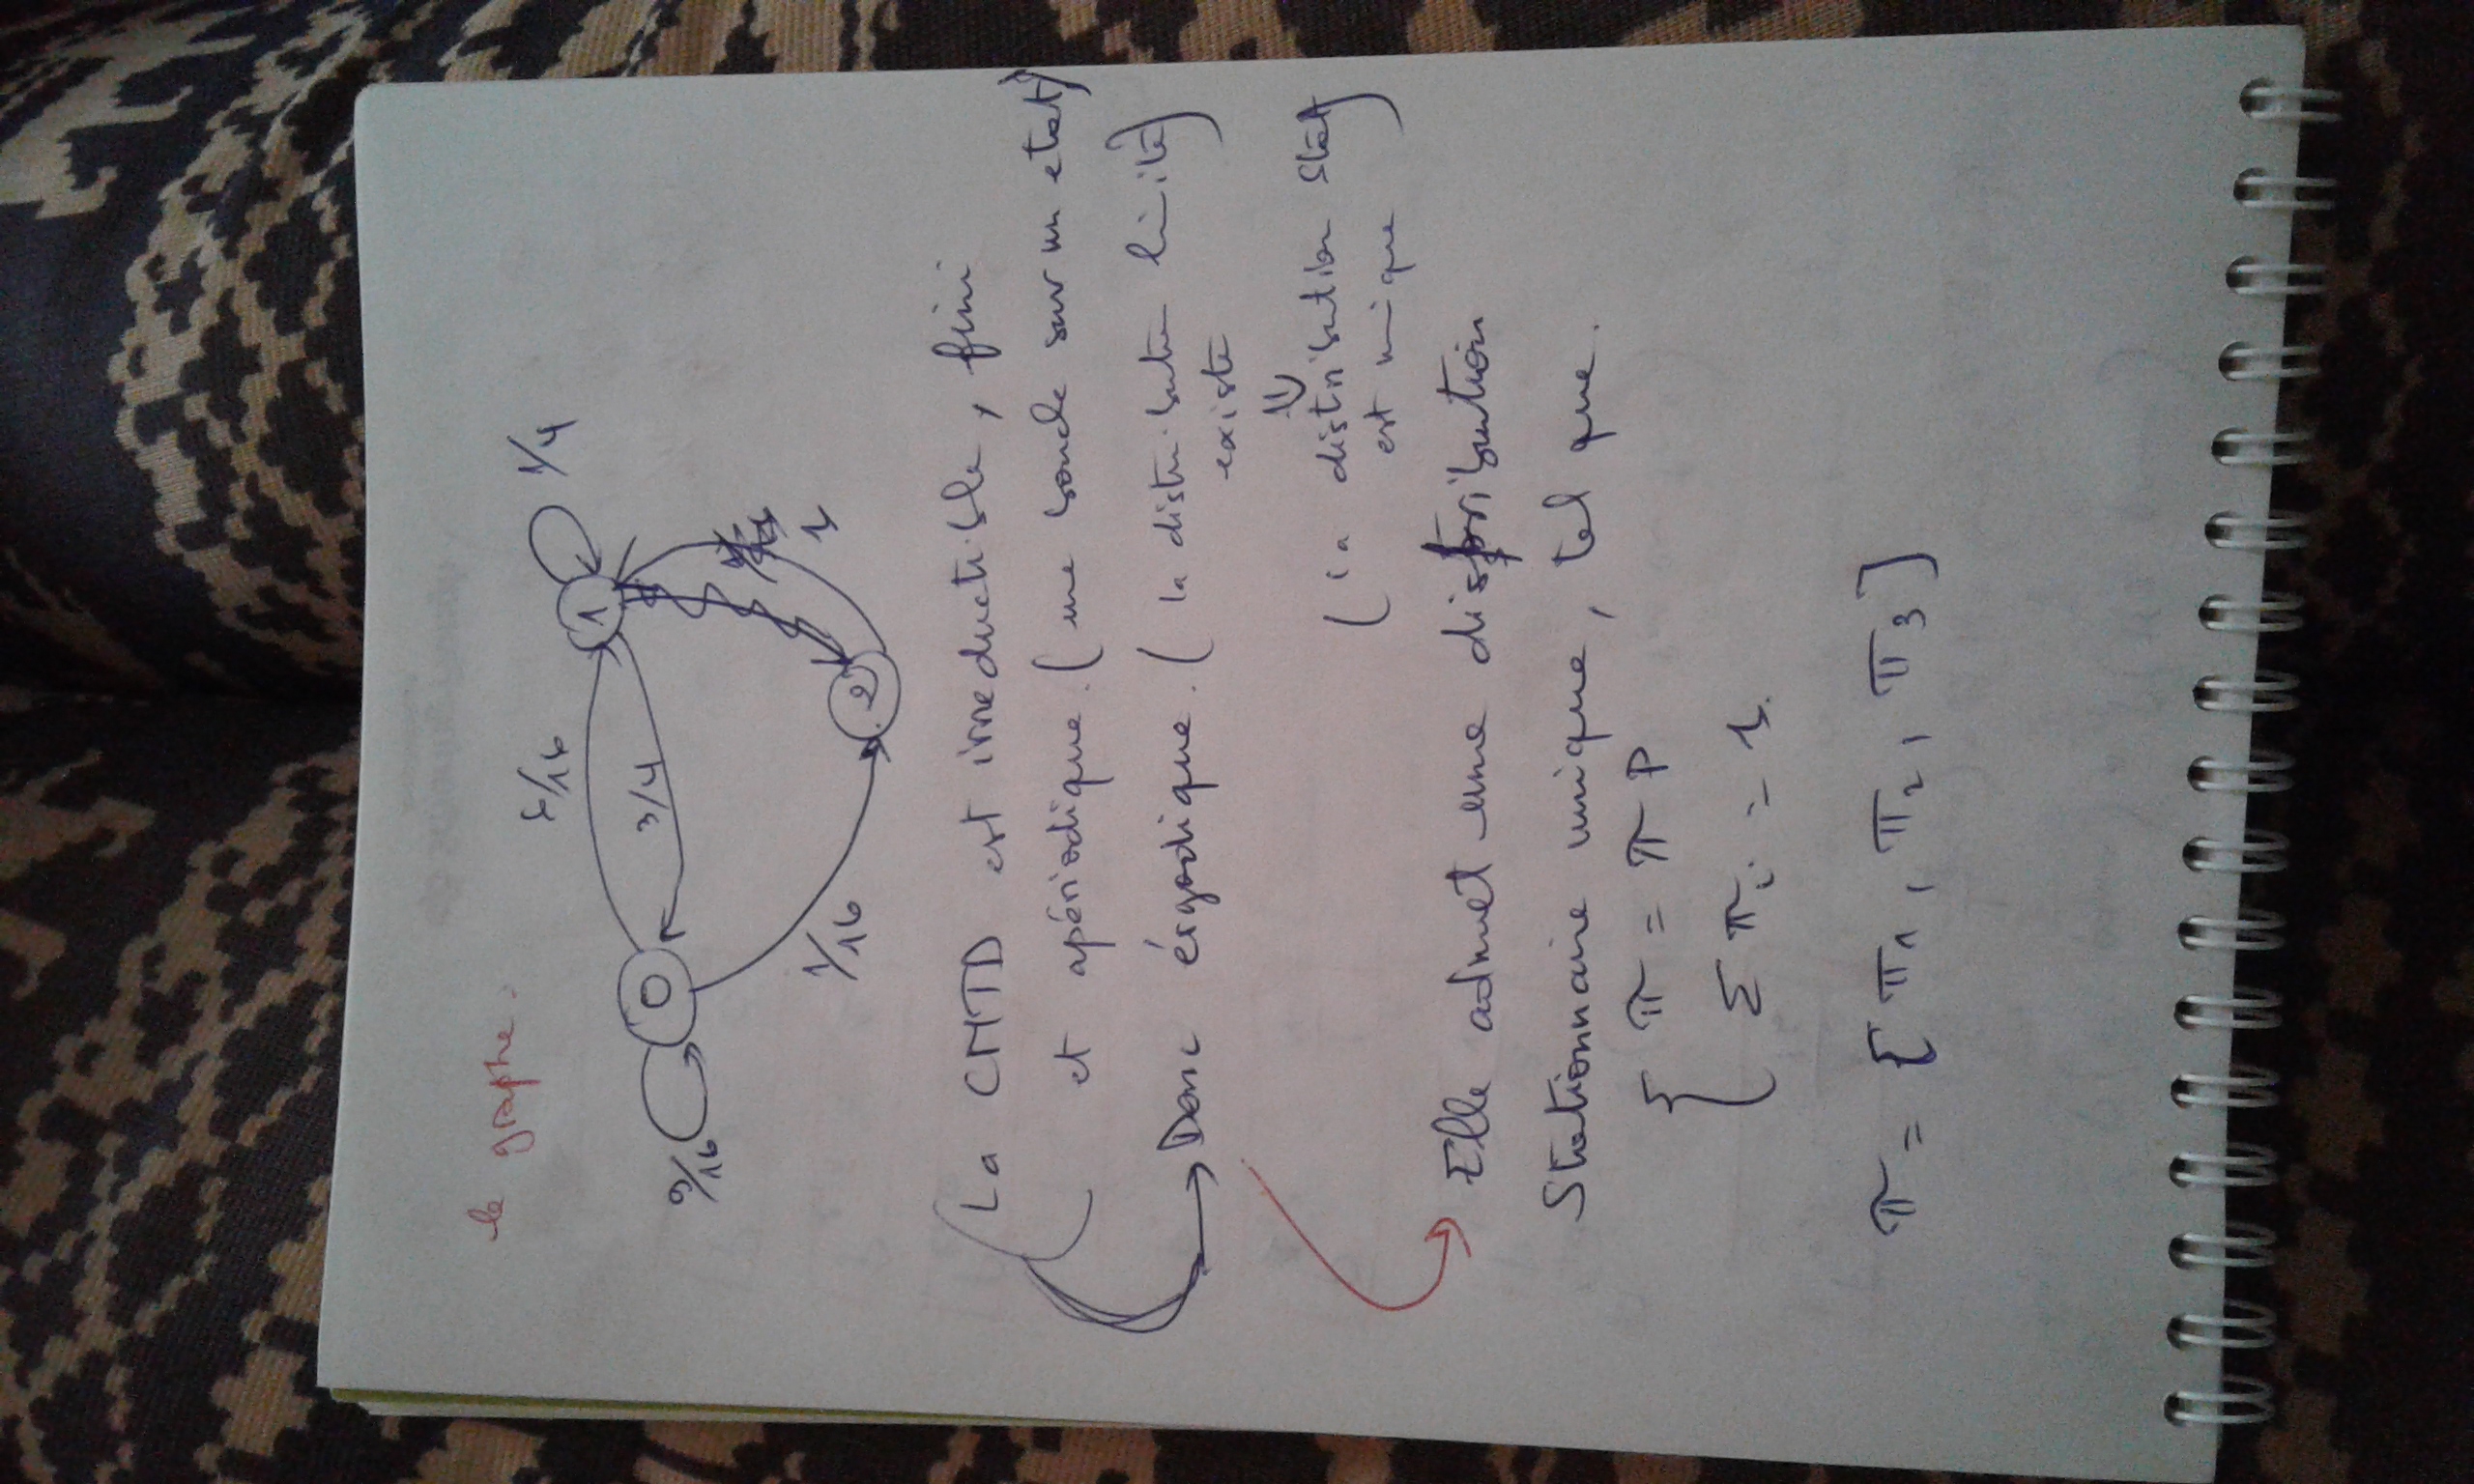 le graphe.
6/16
1/4
0
1
3/4
9/16
1/16
1
2
La CMTD est irreductible, fini
et apériodique. (une boucle sur un etat)
Donc érgodique. (la distribution limite)
existe
⇓
(la distribution stat)
est unique
Elle admet une distribution
Stationnaire unique, tel que.
{ π = π P
Σ πi = 1.
π = [π1, π2, π3]